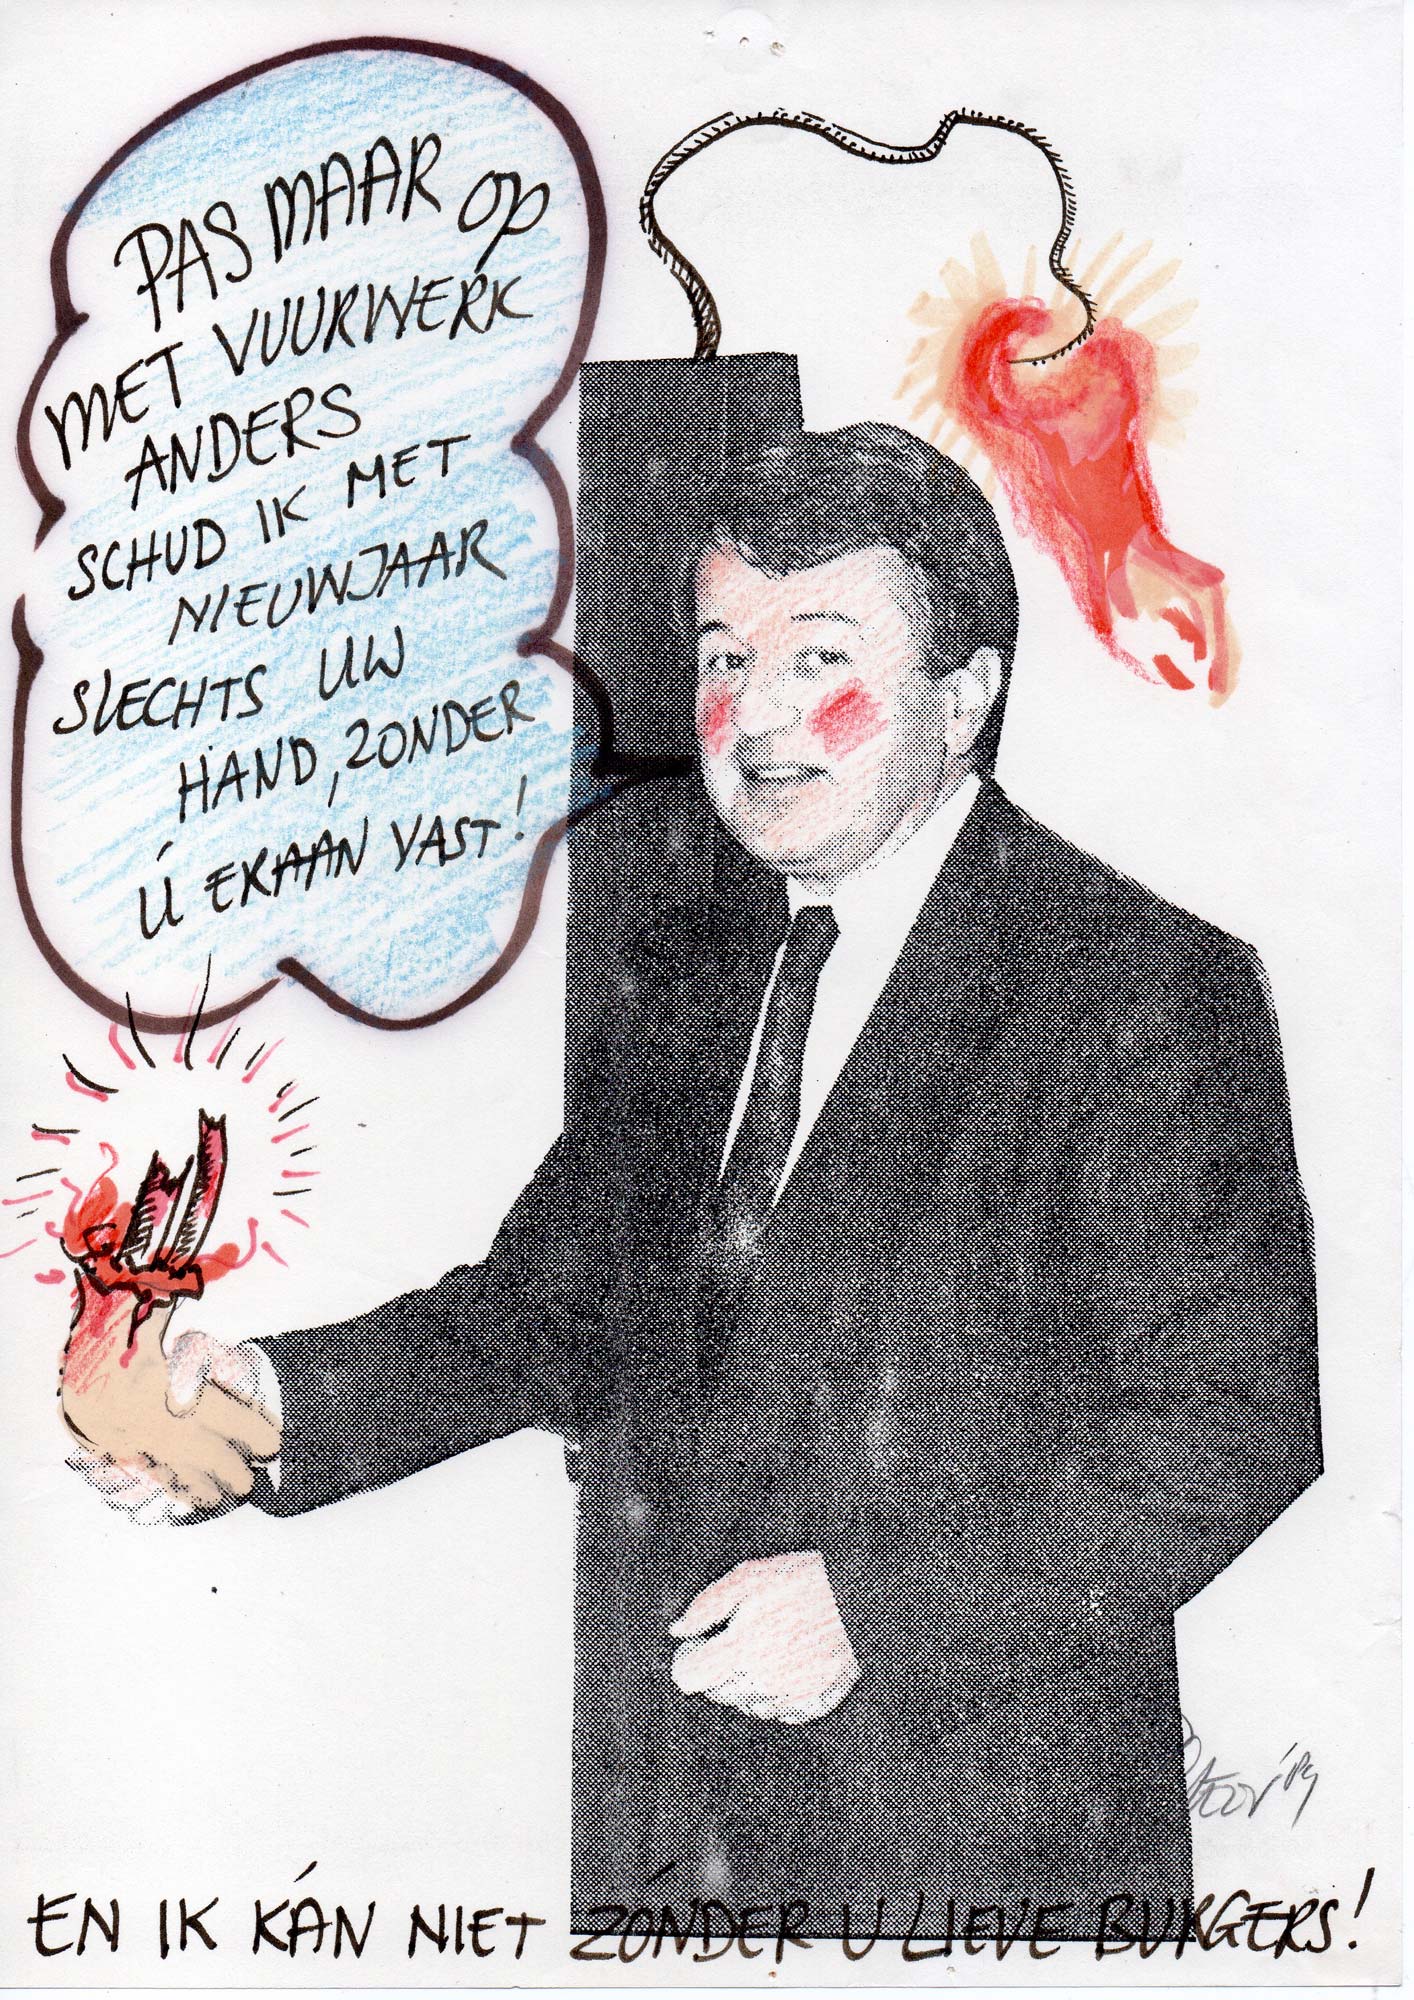 PAS MAAR op
MET VUURWERK
ANDERS
SCHUD IK MET
NIEUWJAAR
SLECHTS UW
HAND, ZONDER
Ú ERAAN VAST!
EN IK KÁN NIET ZÓNDER U LIEVE BURGERS!